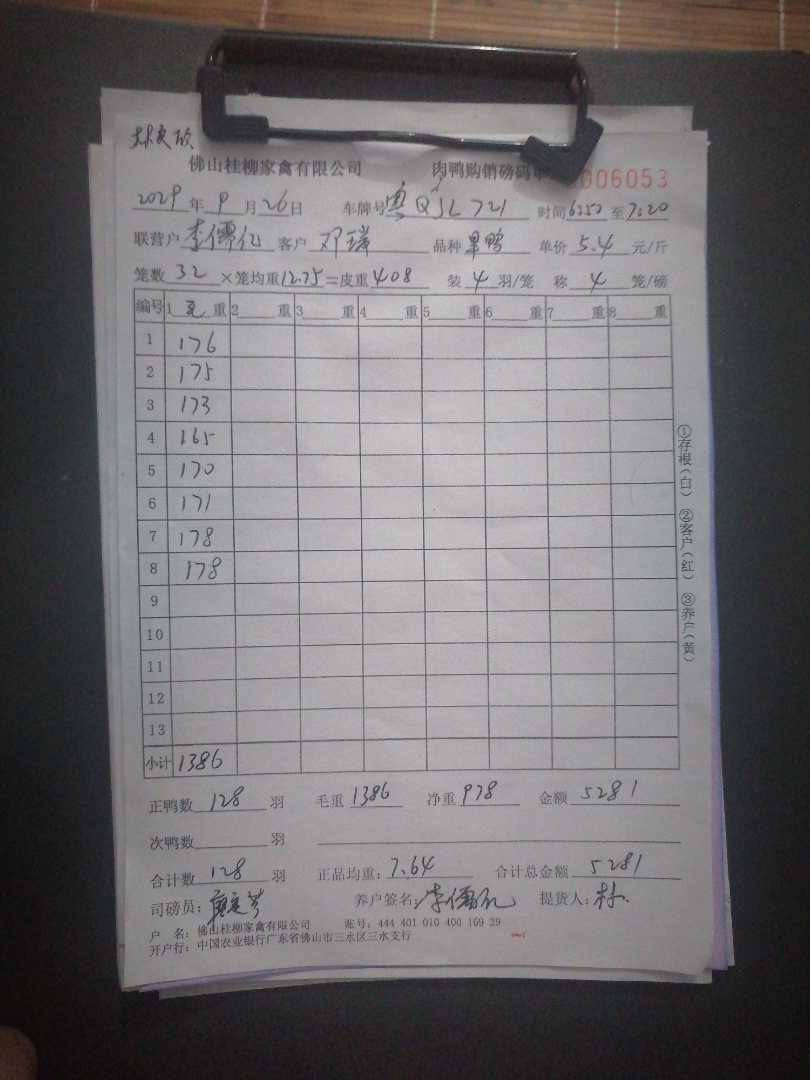 佛山桂柳家禽有限公司 肉鸭购销磅码单 006053
2029年9月26日 车牌号 粤QJL721 时间6:50至7:20
联营户 李儒亿 客户 邓璘 品种 旱鸭 单价5.4元/斤
笼数32×笼均重12.75=皮重408 装4羽/笼 称4笼/磅
编号 1毛重 2 重 3 重 4 重 5 重 6 重 7 重 8 重
1 176
2 175
3 173
4 165
5 170
6 171
7 178
8 178
9
10
11
12
13
小计 1386
正鸭数128羽 毛重1386 净重978 金额5281
次鸭数 羽
合计数128羽 正品均重:7.64 合计总金额5281
司磅员: 养户签名:李儒亿 提货人:林
户 名:佛山桂柳家禽有限公司 账号:444 401 010 400 169 29
开户行:中国农业银行广东省佛山市三水区三水支行
①存根(白) ②客户(红) ③养户(黄)